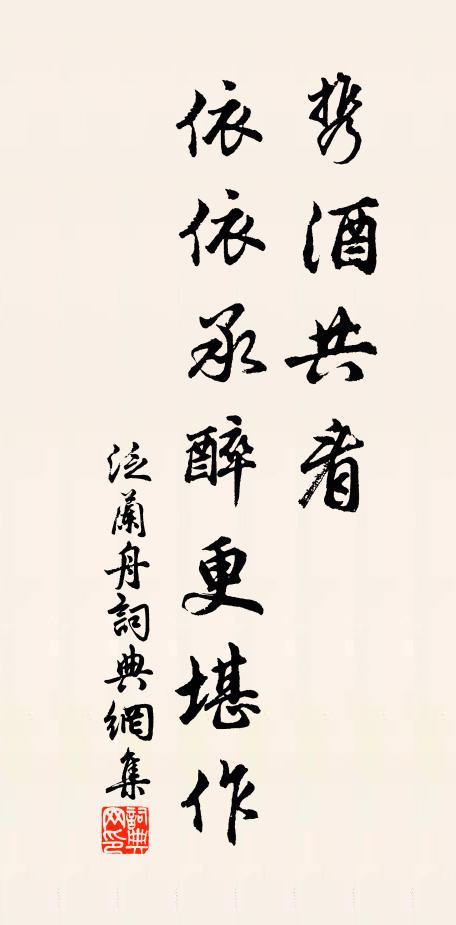 携酒共看
依依承醉更堪作
泛蘭舟詞典網集
詞典網印